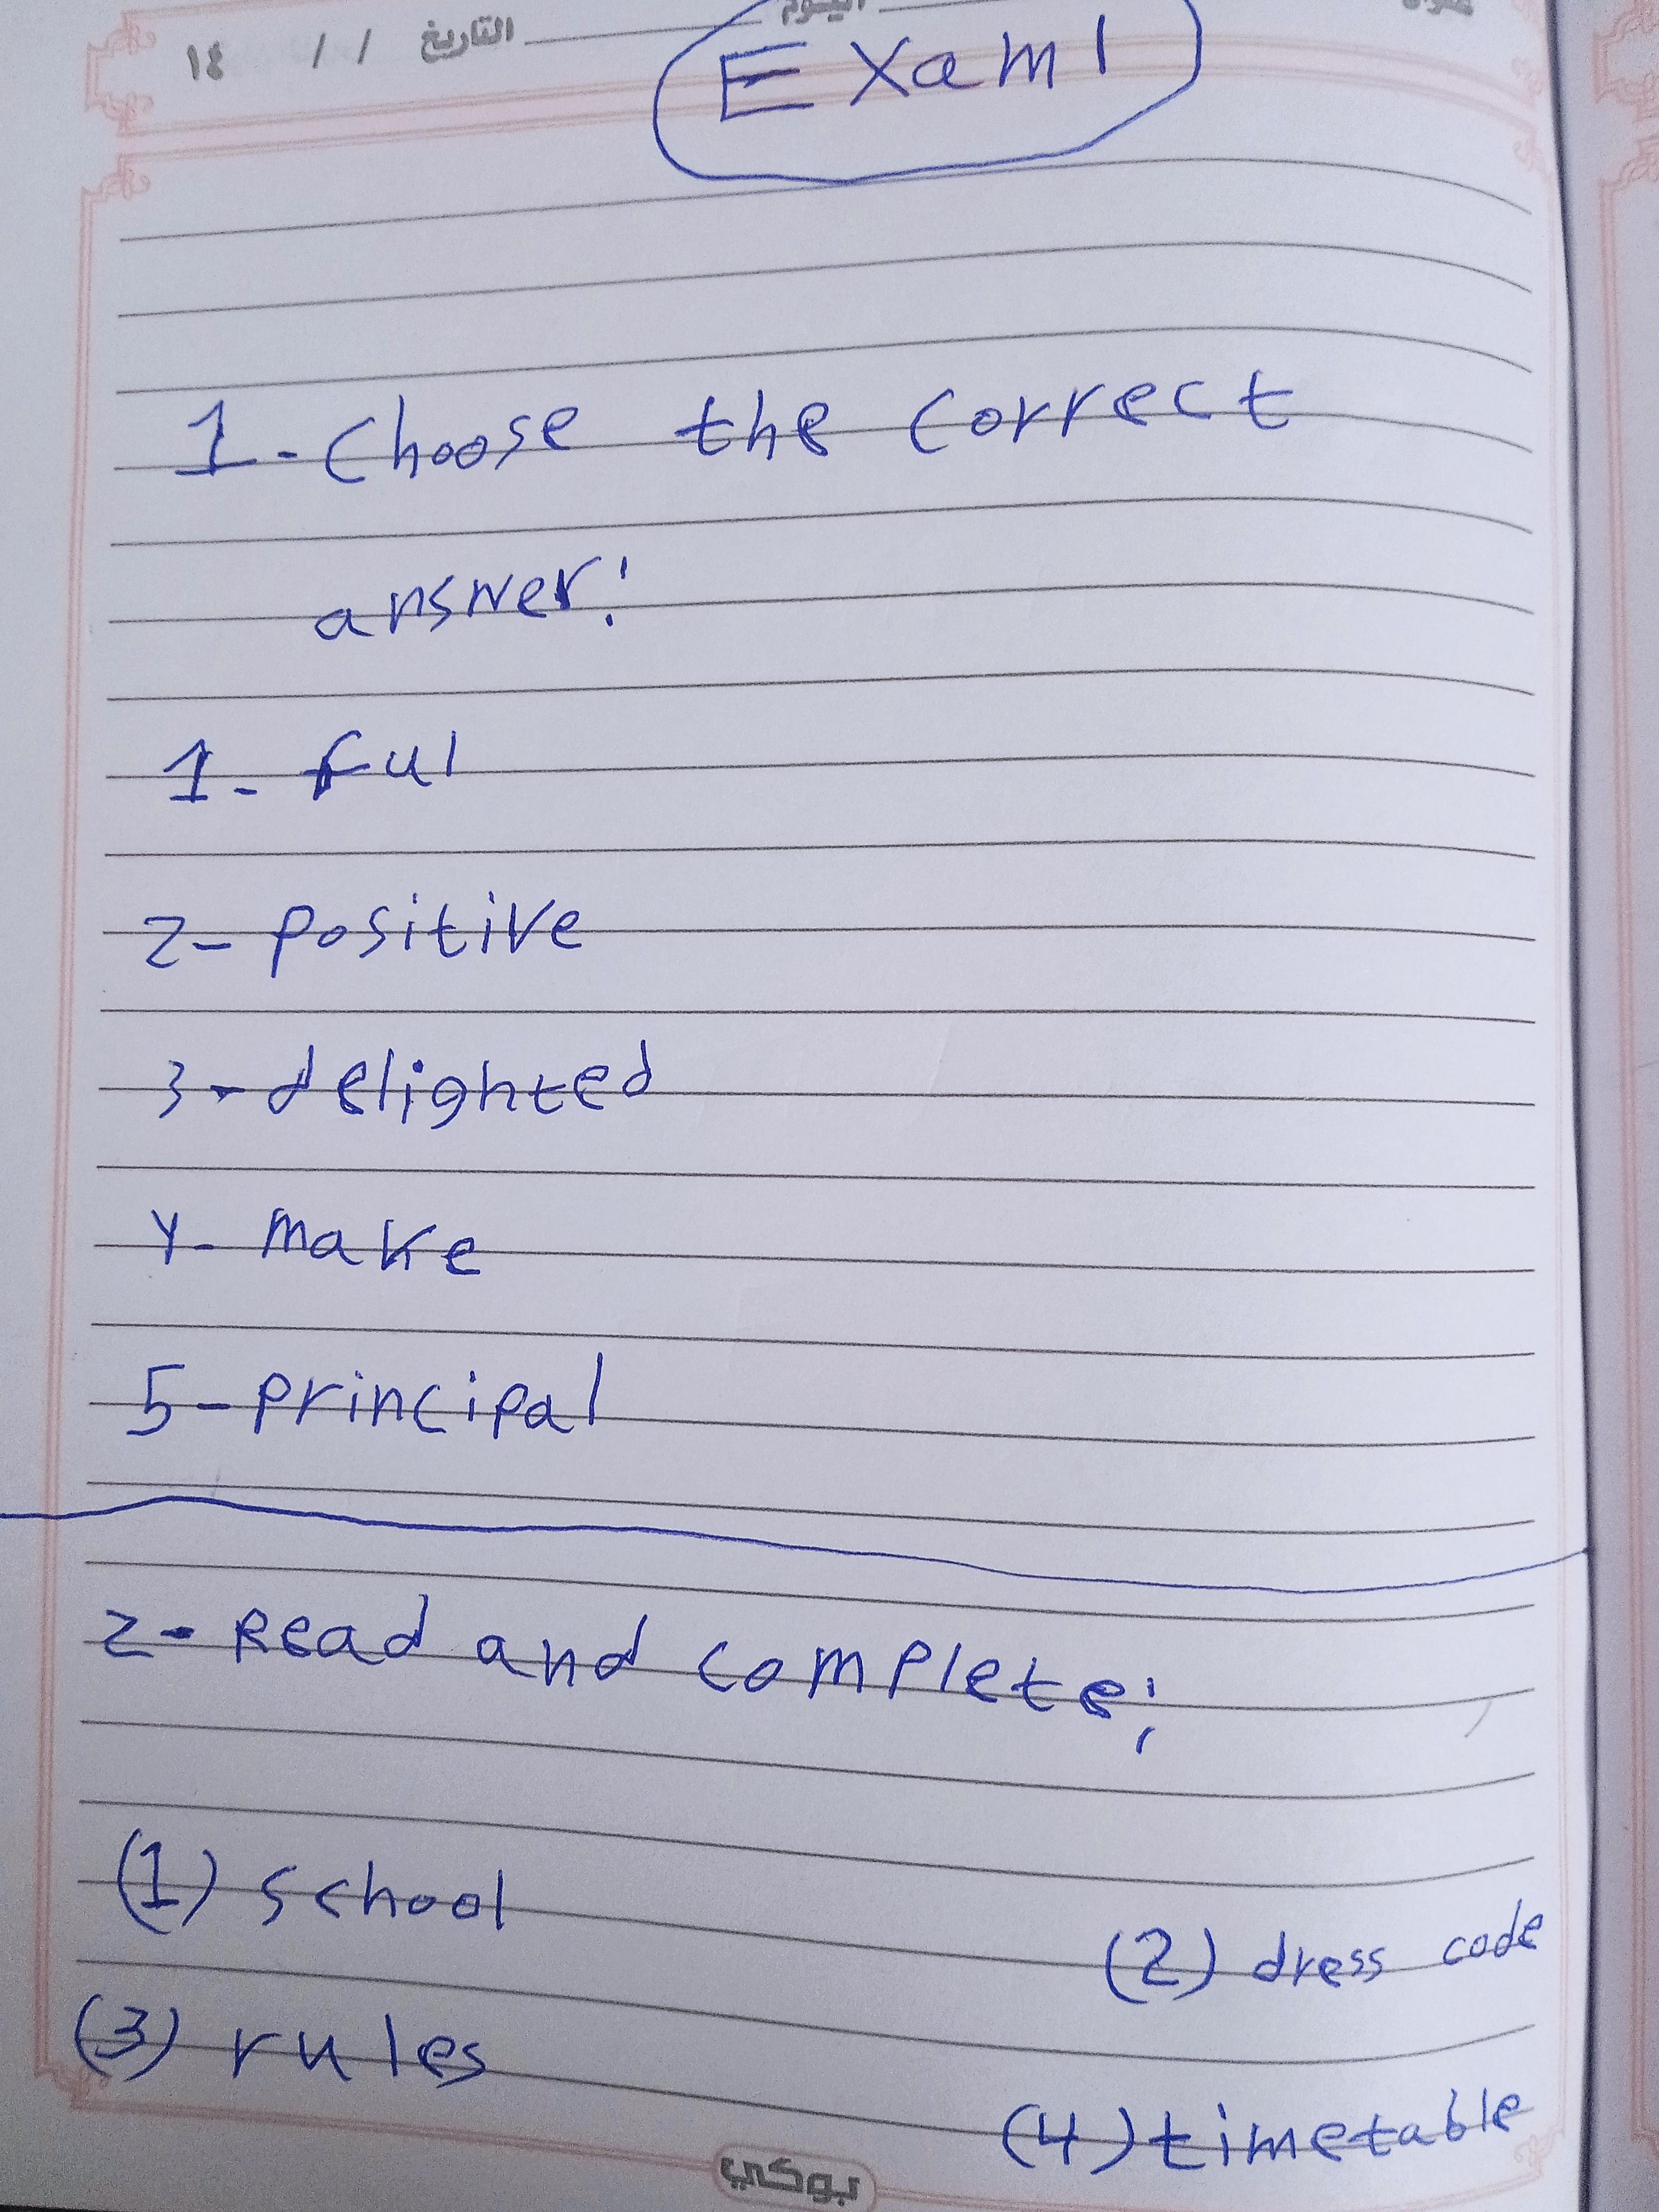 التاريخ / / ١٤
Exam 1
1- Choose the correct
answer:
1- ful
2- positive
3- delighted
4- make
5- principal
2- Read and complete:
(1) school
(2) dress code
(3) rules
(4) timetable
بوكي